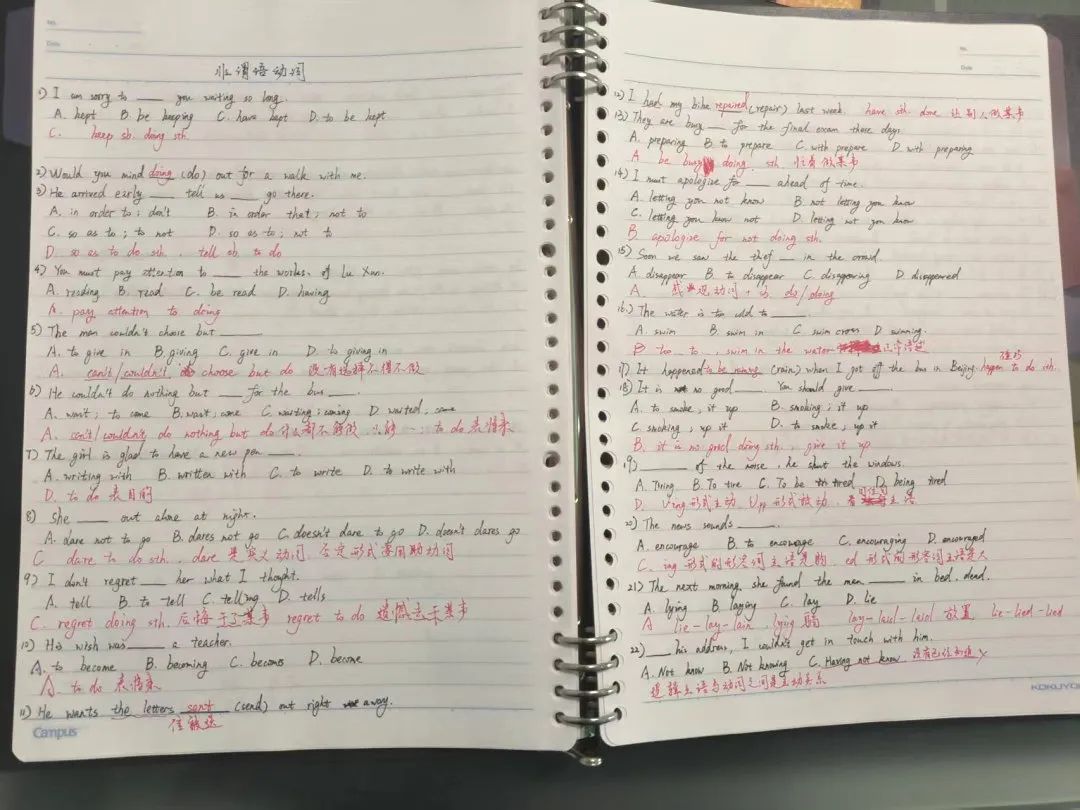 No.
Date
非谓语动词
1) I am sorry to ____ you waiting so long.
A. kept B. be keeping C. have kept D. to be kept
C. keep sb. doing sth.
2) Would you mind doing (do) out for a walk with me.
3) He arrived early ____ tell us ____ go there.
A. in order to; don't B. in order that; not to
C. so as to; to not D. so as to; not to
D. so as to do sth. , tell sb. to do
4) You must pay attention to ____ the works. of Lu Xun.
A. reading B. read C. be read D. having
A. pay attention to doing
5) The man couldn't choose but ____.
A. to give in B. giving C. give in D. to giving in
A. can't/couldn't choose but do 没有选择不得不做
6) He couldn't do nothing but ____ for the bus ____.
A. wait; to come B. wait; come C. waiting; coming D. waited, came
A. can't/couldn't do nothing but do 什么都不能做 只能 to do 表将来
7) The girl is glad to have a new pen ____.
A. writing with B. written with C. to write D. to write with
D. to do 表目的
8) She ____ out alone at night.
A. dare not to go B. dares not go C. doesn't dare to go D. doesn't dares go
C dare to do sth. , dare 是实义动词, 否定形式需用助动词
9) I don't regret ____ her what I thought.
A. tell B. to tell C. telling D. tells
C. regret doing sth. 后悔干了某事 regret to do 遗憾去干某事
10) His wish was ____ a teacher.
A. to become B. becoming C. becomes D. become
A. to do 表将来
11) He wants the letters sent (send) out right away.
信被送
Campus
No.
Date
12) I had my bike repaired (repair) last week. have sth. done 让别人做某事
13) They are busy ____ for the final exam these days
A. preparing B. to prepare C. with prepare D. with preparing
A be busy doing sth 忙着做某事
14) I must apologize for ____ ahead of time.
A. letting you not know B. not letting you know
C. letting you know not D. letting not you know
B. apologize for not doing sth.
15) Soon we saw the thief ____ in the crowd.
A. disappear B. to disappear C. disappearing D. disappeared
A. 感官动词 + sb. do/doing
16.) The water is too cold to ____.
A. swim B. swim in C swim cross D swimming.
B too to , swim in the water
17) It happened to be raining (rain) when I got off the bus in Beijing. happen to do sth.
碰巧
18) It is no good ____. You should give ____.
A. to smoke, it up B. smoking; it up
C smoking, up it D. to smoke, up it
B. it is no good doing sth. , give it up
19) ____ of the noise, he shut the windows.
A. Tiring B. To tire C. To be tired D. being tired
D. Ving形式主动 Vpp形式被动, 看 主语
20) The news sounds ____.
A. encourage B. to encourage C. encouraging D. encouraged
C. ing 形式的形容词主语是物 ed 形式的形容词主语是人
21) The next morning she found the man ____ in bed. dead.
A. lying B. laying C. lay D. lie
A lie-lay-lain lying 躺 lay-laid-laid 放置 lie-lied-lied
22) ____ his address, I couldn't get in touch with him.
A. Not know B. Not knowing C. Having not know
逻辑主语与动词之间是主动关系
KOKUYO